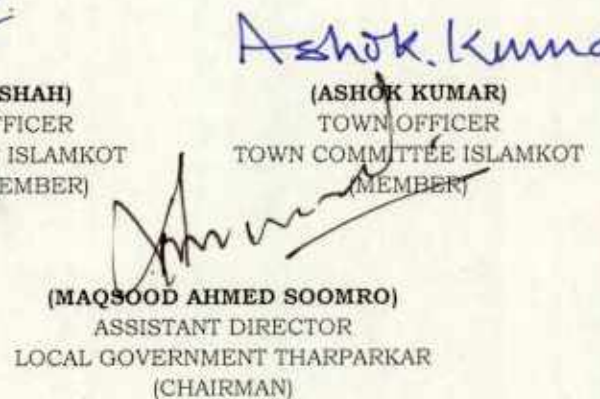 Ashok. Kuma
SHAH)
FFICER
ISLAMKOT
EMBER)
(ASHOK KUMAR)
TOWN OFFICER
TOWN COMMITTEE ISLAMKOT
(MEMBER)
(MAQSOOD AHMED SOOMRO)
ASSISTANT DIRECTOR
LOCAL GOVERNMENT THARPARKAR
(CHAIRMAN)